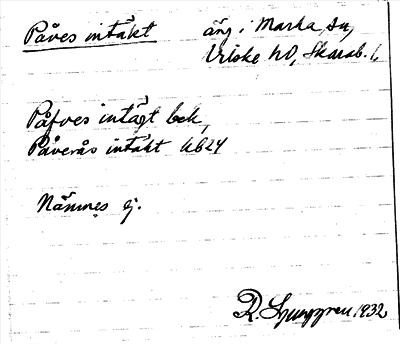 Påves intäkt   äng i Marka sn,
Vilske hd, Skarab. l,
Påfves intägt bek,
Påverås intäkt AB24
Nämnes ej.
R. Ljunggren 1932